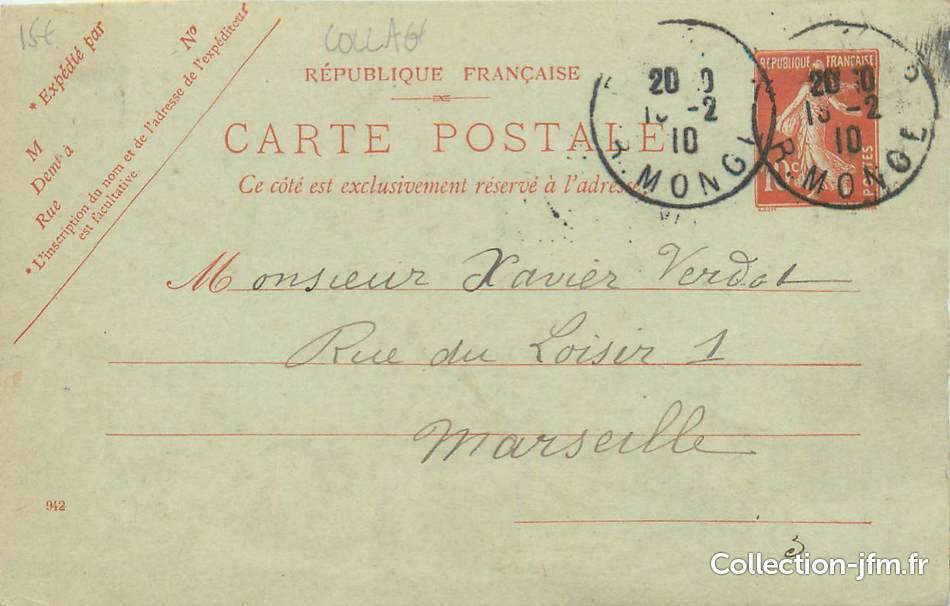 15€
COLLAGE
* Expédié par
N°
M
Demt à
Rue
* L'inscription du nom et de l'adresse de l'expéditeur
est facultative.
RÉPUBLIQUE FRANÇAISE
CARTE POSTALE
Ce côté est exclusivement réservé à l'adresse.
20 0
-2
10
R. MONGE
RÉPUBLIQUE FRANÇAISE
10 c
POSTES
20 0
-2
10
R. MONGE
Monsieur Xavier Verdot
Rue du Loisir 1
Marseille
942
Collection-jfm.fr